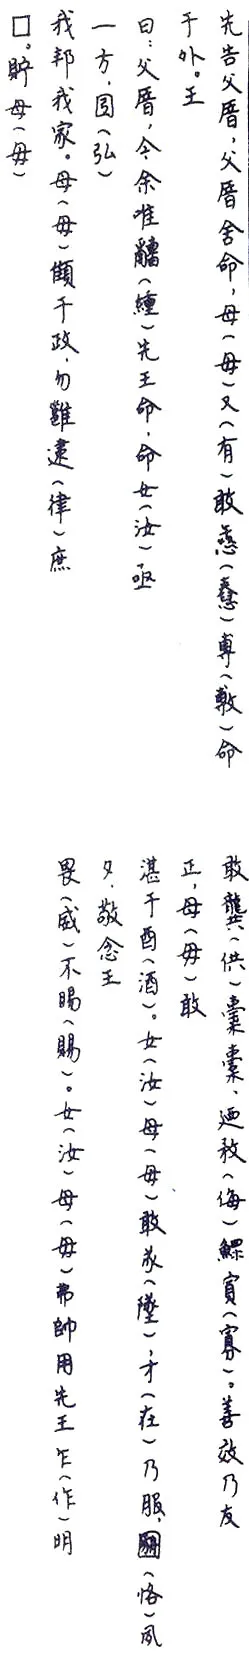 先告父厝,父厝舍命,母(毋)又(有)敢惷(蠢)尃(敷)命
于外。王
曰:父厝,今余唯(纏)先王命,命女(汝)亟
一方,(弘)
我邦我家。母(毋)顀于政,勿雝逮(律)庶
□。貯母(毋)
敢龔(供)橐橐,廼敄(侮)鰥(寡)。善效乃友
正,母(毋)敢
湛于酉(酒)。女(汝)母(毋)敢㒸(墜),才(在)乃服,(恪)夙
夕,敬念王
畏(威)不睗(賜)。女(汝)母(毋)弗帥用先王乍(作)明